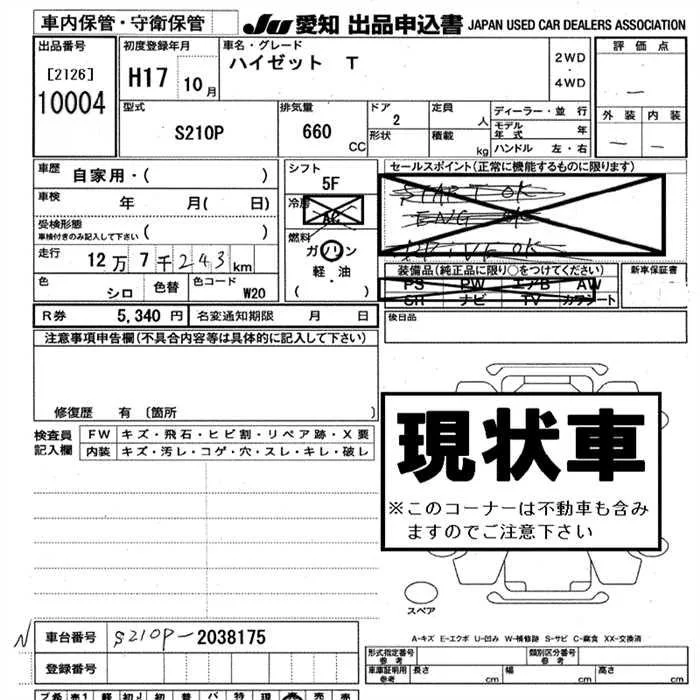 車内保管・守衛保管
JU 愛知 出品申込書 JAPAN USED CAR DEALERS ASSOCIATION
出品番号
[2126]
10004
初度登録年月
H17 10月
車名・グレード
ハイゼット T
2WD
・
4WD
評価点
—
外装 内装
— —
型式
S210P
排気量
660
CC
ドア
2
形状
定員
人
積載
kg
ディーラー・並行
モデル年式 年
ハンドル 左・右
車歴
自家用・( )
車検 年 月( 日)
受検形態
車検付きのみ記入して下さい ( )
走行
12万7千243km
色 シロ 色替 色コード W20
シフト
5F
冷房
AC
燃料
ガソリン
軽・油
( )
セールスポイント(正常に機能するものに限ります)
START OK
ENG OK
DRIVE OK
装備品(純正品に限り○をつけてください)
PS PW エアB AW
SR ナビ TV カワシート
新車保証書
R券 5,340円 名変通知期限 月 日
後日品
注意事項申告欄(不具合内容等は具体的に記入して下さい)
修復歴 有 〔箇所 〕
検査員
記入欄
FW キズ・飛石・ヒビ割・リペア跡・X要
内装 キズ・汚レ・コゲ・穴・スレ・キレ・破レ
現状車
※このコーナーは不動車も含み
ますのでご注意下さい
スペア
A-キズ E-エクボ U-凹み W-補修跡 S-サビ C-腐食 XX-交換済
N
車台番号 S210P-2038175
登録番号
形式指定番号
参考
類別区分番号
参考
車庫証明用
参考
長さ cm 幅 cm 高さ cm